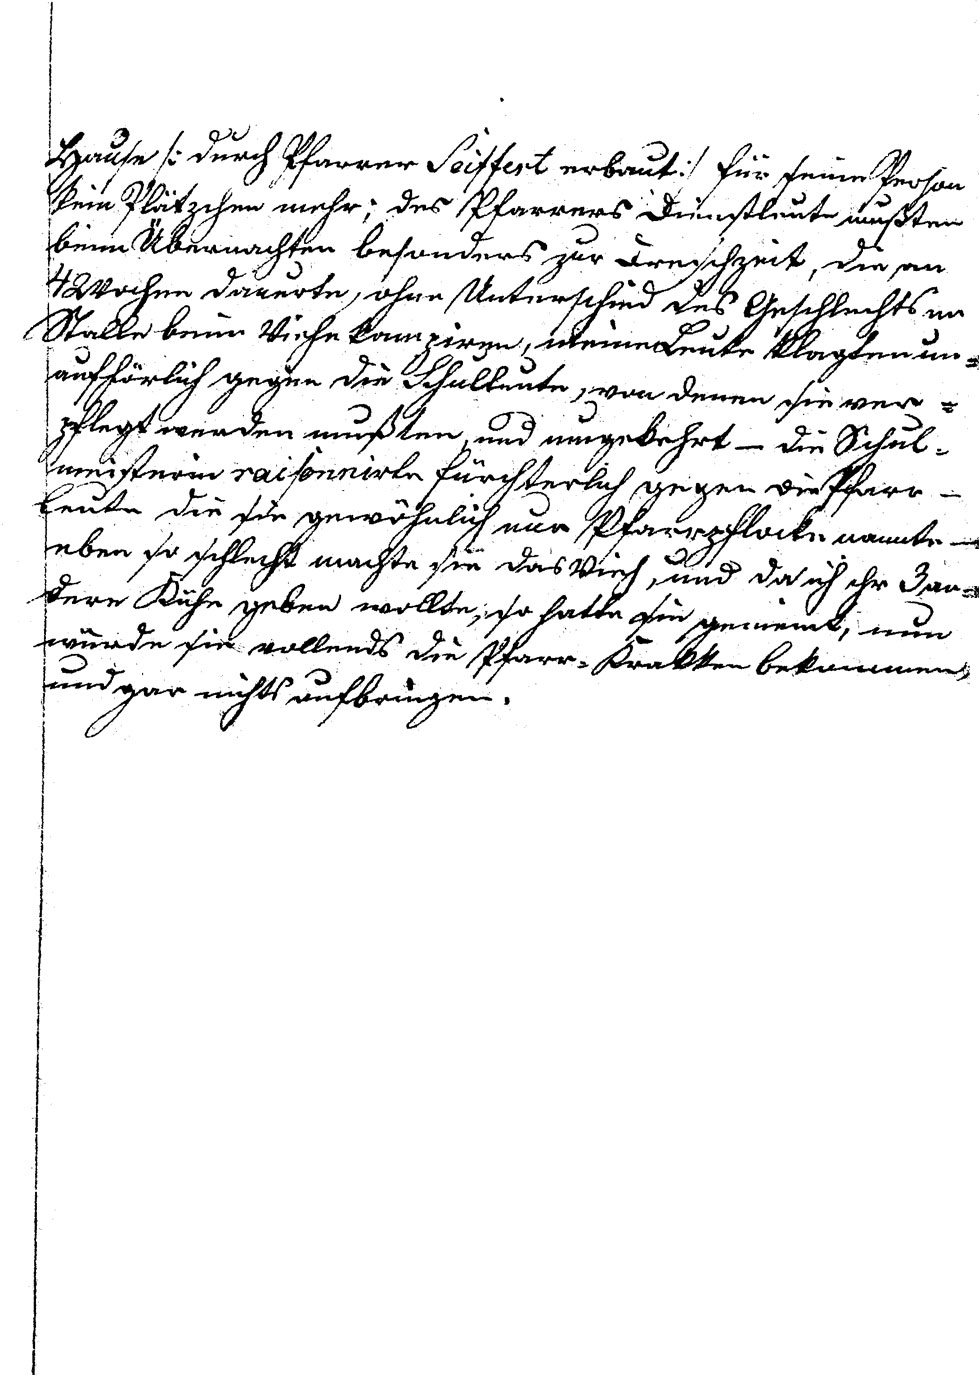 Hause /: durch Pfarrer Seiffert erbaut :/ für seine Person
kein Plätzchen mehr; des Pfarrers Dienstleute mußten
beim Übernachten besonders zur Dreschzeit, die an
4 Wochen dauerte, ohne Unterschied des Geschlechts im
Stalle beim Viehe kampiren, meine Leute klagten un=
aufhörlich gegen die Schulleute, von denen sie ver=
pflegt werden mußten, und umgekehrt – die Schul=
meisterin raisonnirte fürchterlich gegen die Pfarr–
leute die sie gewöhnlich nur Pfarrpflocke nannte –
eben so schlecht machte sie das Vieh, und da ich ihr 3 an=
dere Kühe geben wollte, so hatte sie gemeint, nun
würde sie vollends die Pfarr=Krakken bekommen,
und gar nichts aufbringen.